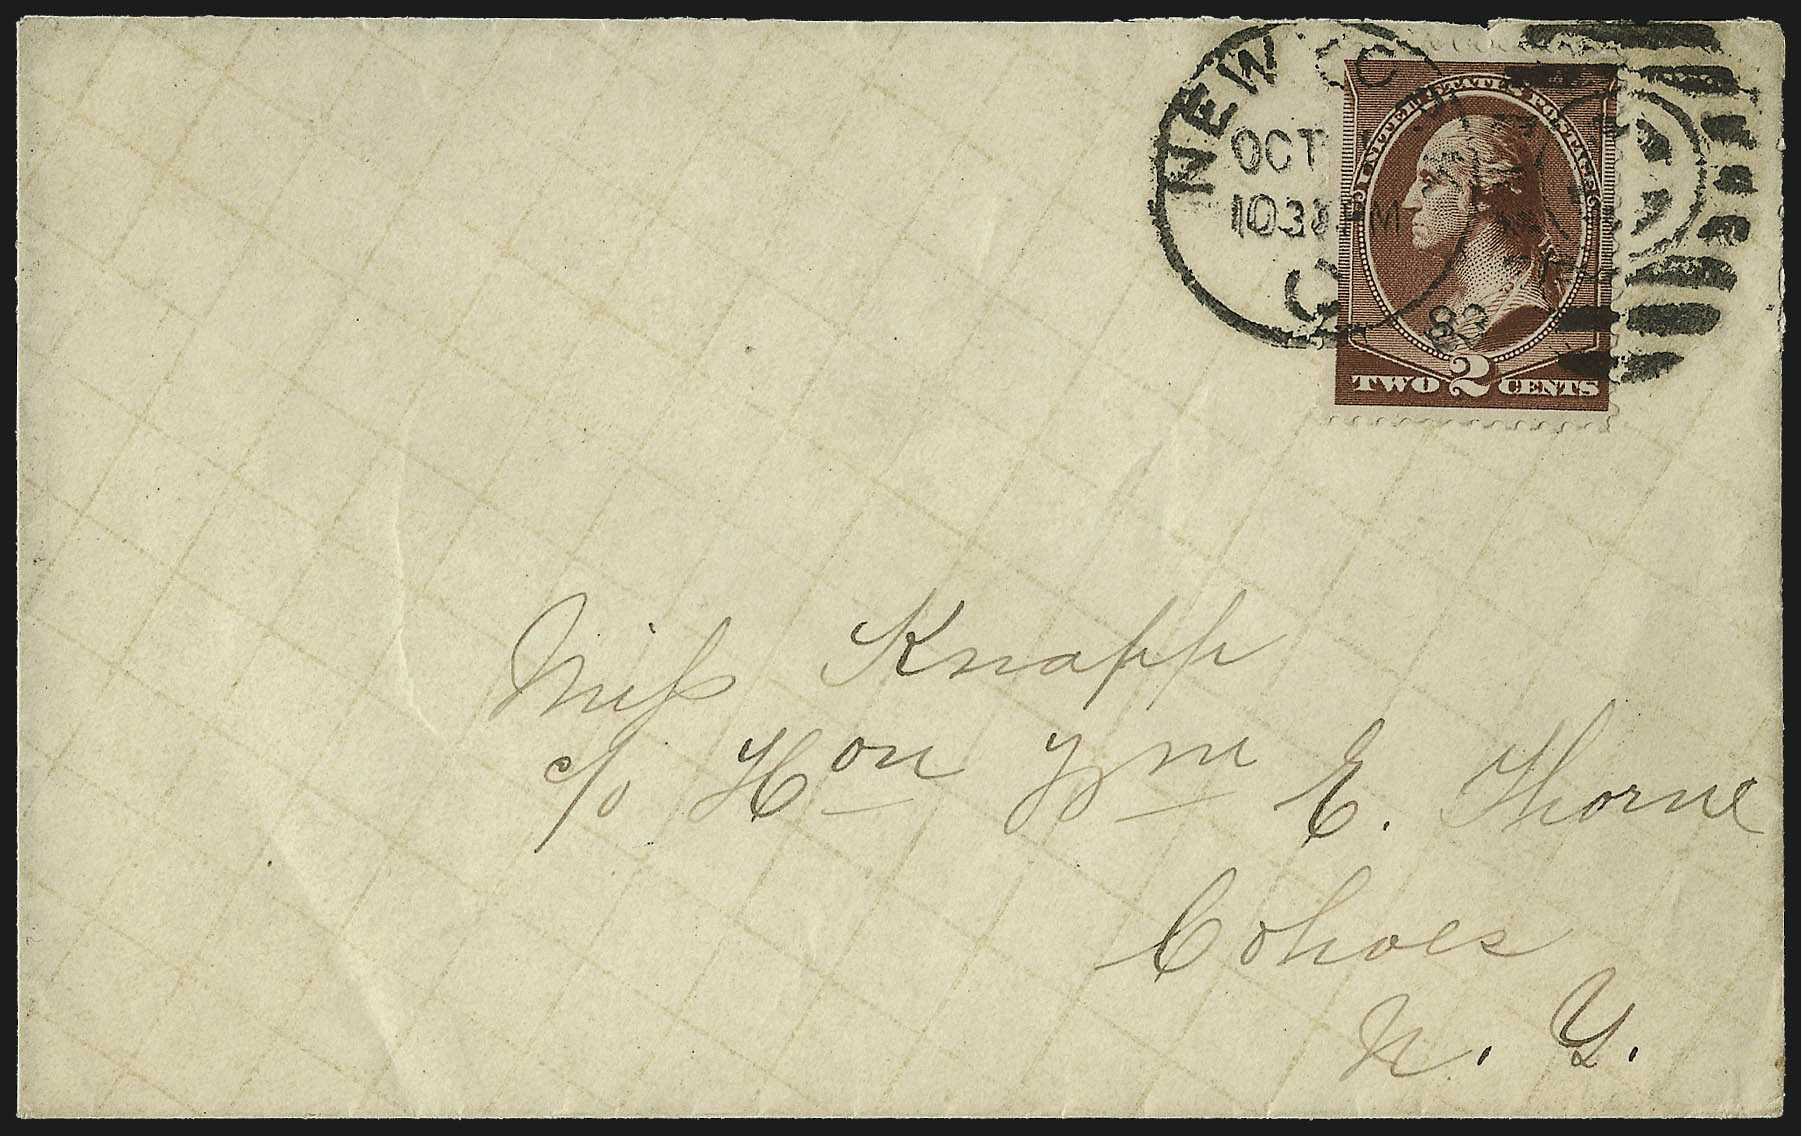 NEW
OCT
1030 PM
83
UNITED STATES POSTAGE
TWO 2 CENTS
Miss Knapp
c/o Hon Wm E. Thorne
Cohoes
N. Y.